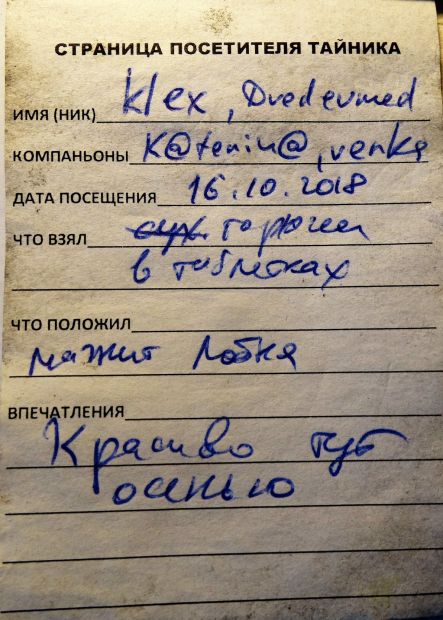 СТРАНИЦА ПОСЕТИТЕЛЯ ТАЙНИКА
ИМЯ (НИК) klex, Dvedevmed
КОМПАНЬОНЫ K@tenin@, venka
ДАТА ПОСЕЩЕНИЯ 16.10.2018
ЧТО ВЗЯЛ сух. горючее
в таблетках
ЧТО ПОЛОЖИЛ
магнит Лобня
ВПЕЧАТЛЕНИЯ
Красиво тут
осенью